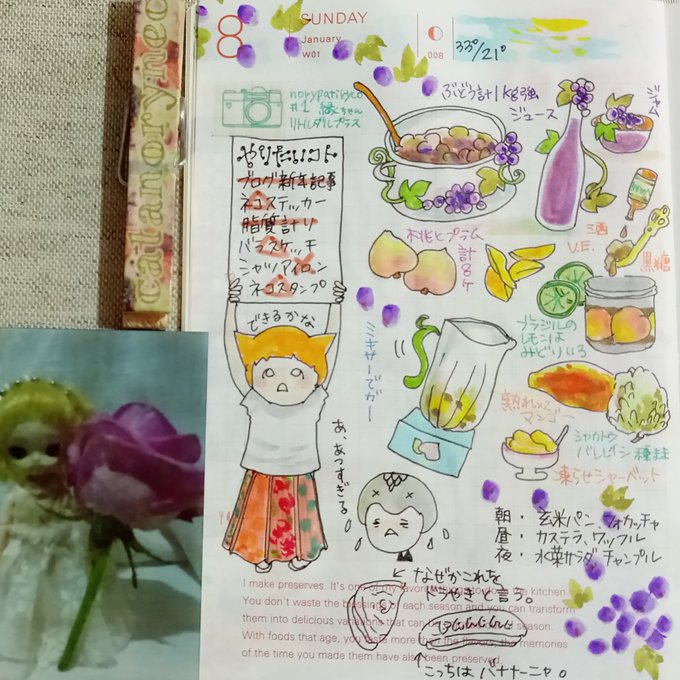 8
SUNDAY
January
W01
008
33°/21°
catanoryneo
norypatiryco
#1 縁ちゃん
リトルダルプラス
ぶどう計1kg強
ジュース
ジャム
やりたいコト
ブログ新年記事
ネコステッカー
脂質計り
バラスケッチ
シャツアイロン
ネコスタンプ
できるかな
桃とプラム
計8ケ
酒
V.E.
黒糖
ブラジルの
レモンは
みどりいろ
ミキサーでガー
熟れ
マンゴー
シャカトウ
種まま
凍らせシャーベット
あ、あつすぎる
朝・玄米パン、フォカッチャ
昼・カステラ、ワッフル
夜・水菜サラダ、チャンプル
なぜかこれを
ドラやきと言う。
I make preserves. It's one of my favorite things to do in the kitchen.
You don't waste the blessings of each season and you can transform
them into delicious variations that can be season.
With foods that age, you taste more than the flavors, the memories
of the time you made them have also been preserved.
こっちはバナナーニャ。